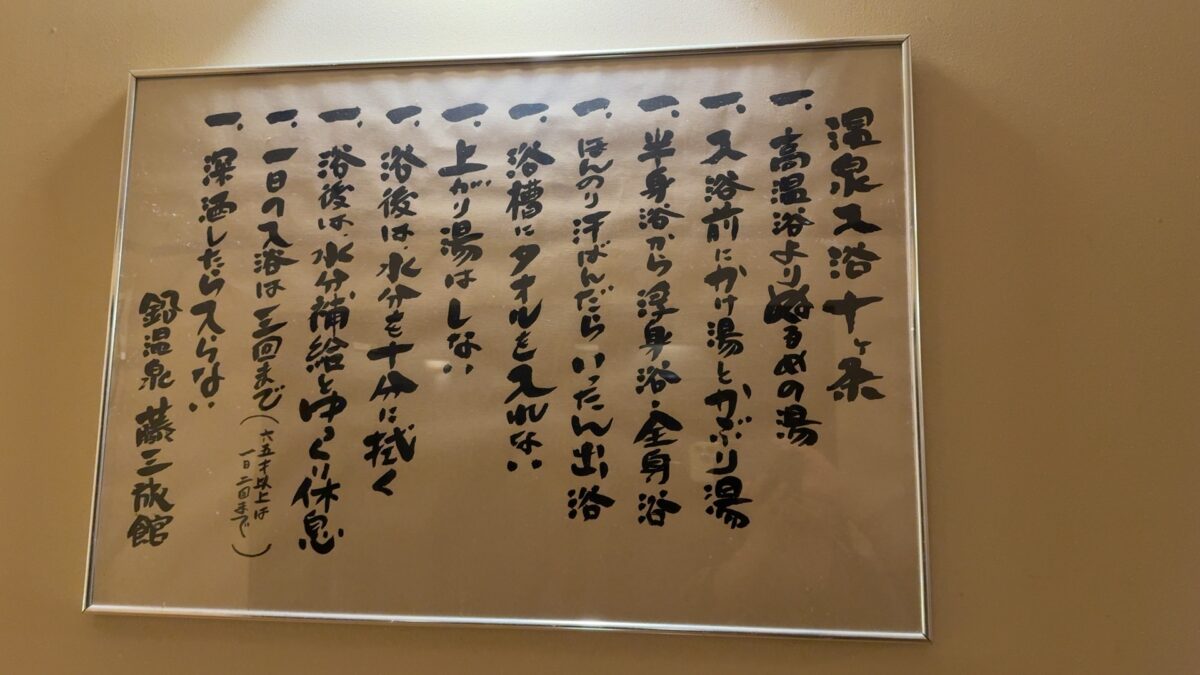 温泉入浴十ヶ条
一、高温浴よりぬるめの湯
一、入浴前にかけ湯とかぶり湯
一、半身浴から浮身浴・全身浴
一、ほんのり汗ばんだらいったん出浴
一、浴槽にタオルを入れない
一、上がり湯はしない
一、浴後は、水分を十分に拭く
一、浴後は、水分補給とゆっくり休息
一、一日の入浴は三回まで(六五才以上は
一日二回まで)
一、深酒したら入らない
鉛温泉 藤三旅館